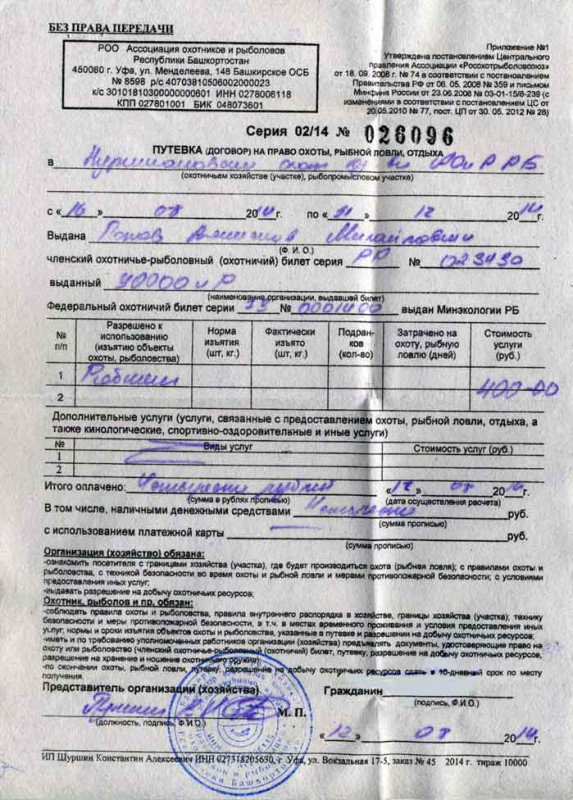 БЕЗ ПРАВА ПЕРЕДАЧИ
РОО Ассоциация охотников и рыболовов
Республики Башкортостан
450080 г. Уфа, ул. Менделеева, 148 Башкирское ОСБ
№ 8598 р/с 40703810506002000023
к/с 30101810300000000601 ИНН 0278006118
КПП 027801001 БИК 048073601
Приложение №1
Утверждена постановлением Центрального
правления Ассоциации «Росохотрыболовсоюз»
от 18. 09. 2008 г. № 74 в соответствии с постановлением
Правительства РФ от 06. 05. 2008 № 359 и письмом
Минфина России от 23.06 2008 № 03-01-15/8-239 (с
изменениями в соответствии с постановлением ЦС от
20.05.2010 № 77, пост. ЦП от 30. 05. 2012 № 28)
Серия 02/14 № 026096
ПУТЕВКА (ДОГОВОР) НА ПРАВО ОХОТЫ, РЫБНОЙ ЛОВЛИ, ОТДЫХА
в РБ
(охотничьем хозяйстве (участке), рыбопромысловом участке)
с « 16 » 08 2014г. по « 31 » 12 2014г.
Выдана Михайлович
(Ф. И. О.)
членский охотничье-рыболовный (охотничий) билет серия РР № 023430
выданный
(наименование организации, выдавшей билет)
Федеральный охотничий билет серии № выдан Минэкологии РБ
№ п/п Разрешено к использованию (изъятию объекты охоты, рыболовства) Норма изъятия (шт, кг.) Фактически изъято (шт, кг.) Подранков (кол-во) Затрачено на охоту, рыбную ловлю (дней) Стоимость услуги (руб.)
1 400-00
2
Дополнительные услуги (услуги, связанные с предоставлением охоты, рыбной ловли, отдыха, а
также кинологические, спортивно-оздоровительные и иные услуги)
№ Виды услуг Стоимость услуг (руб.)
1
2
Итого оплачено: Четыреста рублей « 12 » 08 2014г.
(сумма в рублях прописью) (дата осуществления расчета)
В том числе, наличными денежными средствами Четыреста руб.
(сумма прописью)
с использованием платежной карты руб.
(сумма прописью)
Организация (хозяйство) обязана:
-ознакомить посетителя с границами хозяйства (участка), где будет производиться охота (рыбная ловля); с правилами охоты и
рыболовства, с техникой безопасности во время охоты и рыбной ловли и мерами противопожарной безопасности; с условиями
предоставления иных услуг;
-выдавать разрешение на добычу охотничьих ресурсов;
Охотник, рыболов и пр. обязан:
-соблюдать правила охоты и рыболовства, правила внутреннего распорядка в хозяйстве, границы хозяйства (участка); технику
безопасности и меры противопожарной безопасности, в т.ч. в местах временного проживания и условия предоставления иных
услуг; нормы и сроки изъятия объектов охоты и рыболовства, указанные в путевке и разрешении на добычу охотничьих ресурсов;
-иметь и по требованию уполномоченных работников организации (хозяйства) предъявлять документы, удостоверяющие право на
охоту или рыболовство (членский охотничье-рыболовный (охотничий) билет, путевку, разрешение на добычу охотничьих ресурсов,
разрешение на хранение и ношение охотничьего оружия);
-по окончании охоты, рыбной ловли, путевку, разрешение на добычу охотничьих ресурсов сдать в 10-дневный срок по месту
получения.
Представитель организации (хозяйства) Гражданин
(должность, подпись, Ф.И.О.) М. П. (подпись, Ф.И.О.)
« 12 » 08 2014г.
ИП Шуршин Константин Алексеевич ИНН 027318205630, г. Уфа, ул. Вокзальная 17-5, заказ № 45 2014 г. тираж 10000